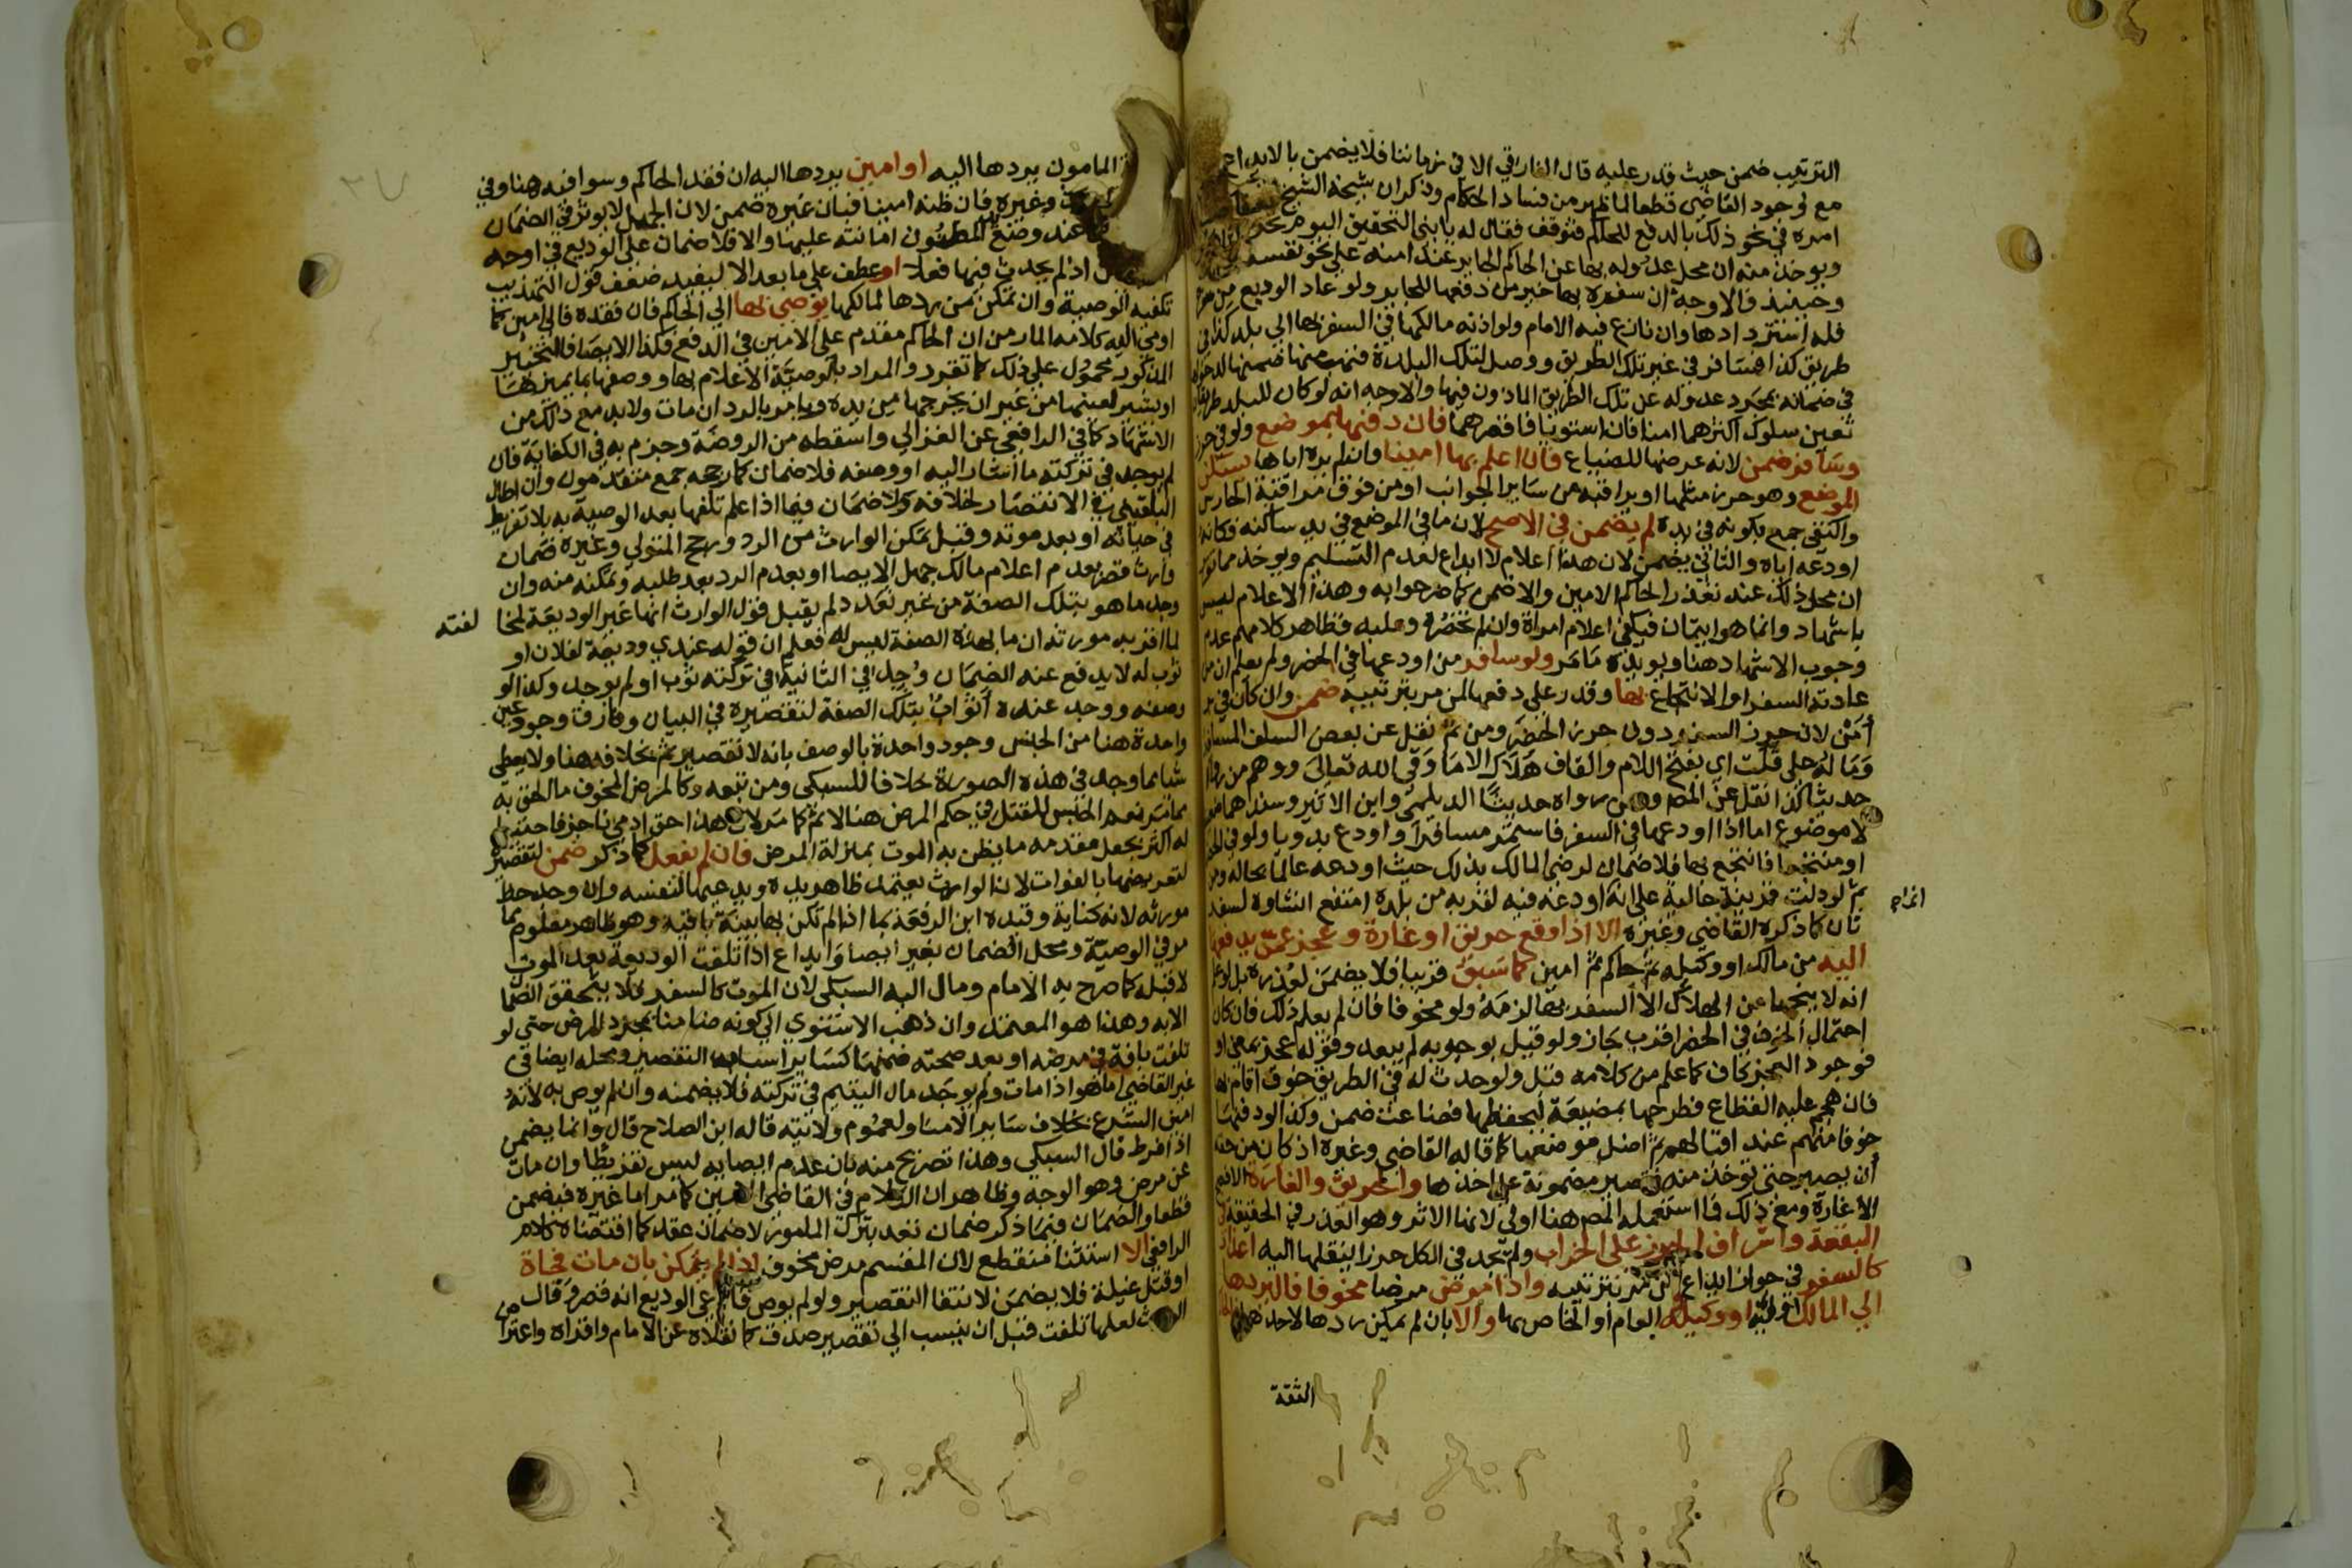 الترتيب ضمن حيث قدر عليه قال الفارقي الا في زماننا فلا يضمن بالايداع
مع وجود القاضي قطعا لما ظهر من فساد الحكام وذكر ان شيخه الشيخ
امره في نحو ذلك بالدفع للحاكم فتوقف فقال له يا بني التحقيق اليوم
ويوخذ منه ان محل عدوله بها عن الحاكم الجاير عند امنه على نحو نفسه
وحينيذ فالاوجه ان سفره بها خير من دفعها للجاير ولو عاد الوديع من
فله استردادها وان نازع فيه الامام ولو اذنه مالكها في السفر بها الي بلد كذا في
طريق كذا فسافر في غير تلك الطريق ووصل لتلك البلدة فنهب منها ضمنها
في ضمانه بمجرد عدوله عن تلك الطريق الماذون فيها والاوجه انه لو كان للبلد
تعين سلوك اكثرهما امنا فان استويا فاقصرهما فان دفنها بموضع ولو في حرز
وسافر ضمن لانه عرضها للضياع فان اعلم بها امينا وان لم يره اياها يسكن
الموضع وهو حرز مثلها او يراقبه من ساير الجوانب او من فوق مراقبة الحارس
واكتفى جمع بكونه في يده لم يضمن في الاصح لان ما في الموضع في يد ساكنه فكانه
اودعه اياه والثاني يضمن لان هذا اعلام لا ايداع لعدم التسليم ويوخذ مما
ان محل ذلك عند تعذر الحاكم الامين والا ضمن كما صرحوا به وهذا الاعلام ليس
باشهاد وانما هو ايتمان فيكفي اعلام امراة وان لم تحضره وعليه فظاهر كلامهم عدم
وجوب الاشهاد هنا ويويده ما مر ولو سافر من اودعها في الحضر ولم يعلم ان من
عادته السفر او الانتجاع بها وقدر على دفعها لمن مر بترتيبه ضمن وان كان في بر
أمن لان حرز السفر دون حرز الحضر ومن ثم نقل عن بعض السلف المسافر
وماله على قلت اي بفتح اللام والقاف هلاك الا ما وقى الله تعالى ووهم من
حديثا كذا نقل عن المصنف ومن رواه حديثا الديلمي وابن الاثير وسندهما
لا موضوع اما اذا اودعها في السفر فاستمر مسافرا او اودع بدويا ولو في
او منتجعا فانتجع بها فلا ضمان لرضى المالك بذلك حيث اودعه عالما بحاله
ثم لو دلت قرينة حالية على انه اودعه فيه لقربه من بلده امتنع انشاوه لسفر
ثان كما ذكره القاضي وغيره الا اذا وقع حريق او غارة وعجز عمن يدفعها
اليه من مالك او وكيله ثم حاكم ثم امين كما سبق قريبا فلا يضمن لعذره بل لو علم
انه لا ينجيها عن الهلاك الا السفر بها لزمه ولو مخوفا فان لم يعلم ذلك فان كان
احتمال الخوف في الحضر اقرب جاز ولو قيل بوجوبه لم يبعد وقوله عجز بمعنى او
فوجود العجز كاف كما علم من كلامه قبل ولو حدث له في الطريق خوف اقام بها
فان هجم عليه القطاع فطرحها بمضيعة ليحفظها فضاعت ضمن وكذا لو دفنها
خوفا منهم عند اقبالهم ثم اضل موضعها كما قاله القاضي وغيره اذ كان من حقه
ان يصبر حتى توخذ منه فتصير مضمونة على اخذها والحريق والغارة الافصح
الاغارة ومع ذلك فما استعمله المصنف هنا اولي لانها الاثر وهو العذر في الحقيقة
البقعة واشراف الحرز على الخراب ولم يجد في الكل حرزا لينقلها اليه اعذار
كالسفر في جواز ايداع من مر بترتيبه واذا مرض مرضا مخوفا فليردها
الي المالك او وليه او وكيله العام او الخاص بها والا بان لم يمكن ردها لاحدهما
انشاوه
الثقة
المامون يردها اليه او امين يردها اليه ان فقد الحاكم وسوا فيه هنا وفي
وغيره فان ظنه امينا فبان غيره ضمن لان الجهل لا يوثر في الضمان
عند وضع المظنون امانته عليها والا فلا ضمان على الوديع في اوجه
اذ لم يحدث فيها فعلا او عطف على ما بعد الا ليفيد ضعف قول التهذيب
تكفيه الوصية وان تمكن من ردها لمالكها يوصي بها الي الحاكم فان فقده فالي امين كما
اومى اليه كلامه المار من ان الحاكم مقدم على الامين في الدفع فكذا الايصا فالتخيير
المذكور محمول على ذلك كما تقرر والمراد بالوصية الاعلام بها ووصفها بما يميزها
او يشير لعينها من غير ان يخرجها من يده ويامر بالرد ان مات ولا بد مع ذلك من
الاشهاد كما في الرافعي عن الغزالي واسقطه من الروضة وجزم به في الكفاية فان
لم يوجد في تركته ما اشار اليه او وصفه فلا ضمان كما رجحه جمع متقدمون وان اطال
البلقيني في الانتصار لخلافه ولا ضمان فيما اذا علم تلفها بعد الوصية به بلا تفريط
في حياته او بعد موته وقبل تمكن الوارث من الرد ورجح المتولي وغيره ضمان
وارث قصر بعدم اعلام مالك جهل الايصا او بعدم الرد بعد طلبه وتمكنه منه وان
وجد ما هو بتلك الصفة من غير تعدد لم يقبل قول الوارث انها غير الوديعة لمخا لفته
لما اقر به مورثه ان ما بهذه الصفة ليس له فعلم ان قوله عندي وديعة لفلان او
ثوب له لا يدفع عنه الضمان وجد في الثانية في تركته ثوب او لم يوجد وكذا لو
وصفه ووجد عنده أثواب بتلك الصفة لتقصيره في البيان وفارق وجود عين
واحدة هنا من الجنس وجود واحدة بالوصف بانه لا تقصير ثم بخلافه هنا ولا يعطى
شيا مما وجد في هذه الصورة خلافا للسبكي ومن تبعه وكالمرض المخوف ما الحق به
مما مر نعم الحبس للقتل في حكم المرض هنا لا ثم كما مر لان هذا حق ادمي ناجز فاحتيط
له اكثر بجعل مقدمه ما يظن به الموت بمنزلة المرض فان لم يفعل كما ذكر ضمن لتقصيره
لتعريضها بالفوات لان الوارث يعتمد ظاهر يده ويدعيها لنفسه وان وجد خط
مورثه لانه كناية وقيده ابن الرفعة بما اذا لم تكن بها بينة باقية وهو ظاهر معلوم مما
مر في الوصية ومحل الضمان بغير ايصا وايداع اذا تلفت الوديعة بعد الموت
لا قبله كما صرح به الامام ومال اليه السبكي لان الموت كالسفر فلا يتحقق الضما
الا به وهذا هو المعتمد وان ذهب الاسنوي الى كونه ضامنا بمجرد المرض حتى لو
تلفت بافة في مرضه او بعد صحته ضمنها كساير اسباب التقصير ومحله ايضا في
غير القاضي اما هو اذا مات ولم يوجد مال اليتيم في تركته فلا يضمنه وان لم يوص به لانه
امين الشرع بخلاف ساير الامنا ولعموم ولايته قاله ابن الصلاح قال وانما يضمن
اذا فرط قال السبكي وهذا تصريح منه بان عدم ايصايه ليس تفريطا وان مات
عن مرض وهو الوجه وظاهر ان الكلام في القاضي الامين كما مر اما غيره فيضمن
قطعا والضمان فيما ذكر ضمان تعد بترك المامور لا ضمان عقد كما اقتضاه كلام
الرافعي الا استثنا منقطع لان المقسم مرض مخوف اذا لم يتمكن بان مات فجاة
او قتل غيلة فلا يضمن لانتفا التقصير ولو لم يوص فادعى الوديع انه قصر وقال
الوارث لعلها تلفت قبل ان ينسب الي تقصير صدق كما نقلاه عن الامام واقراه